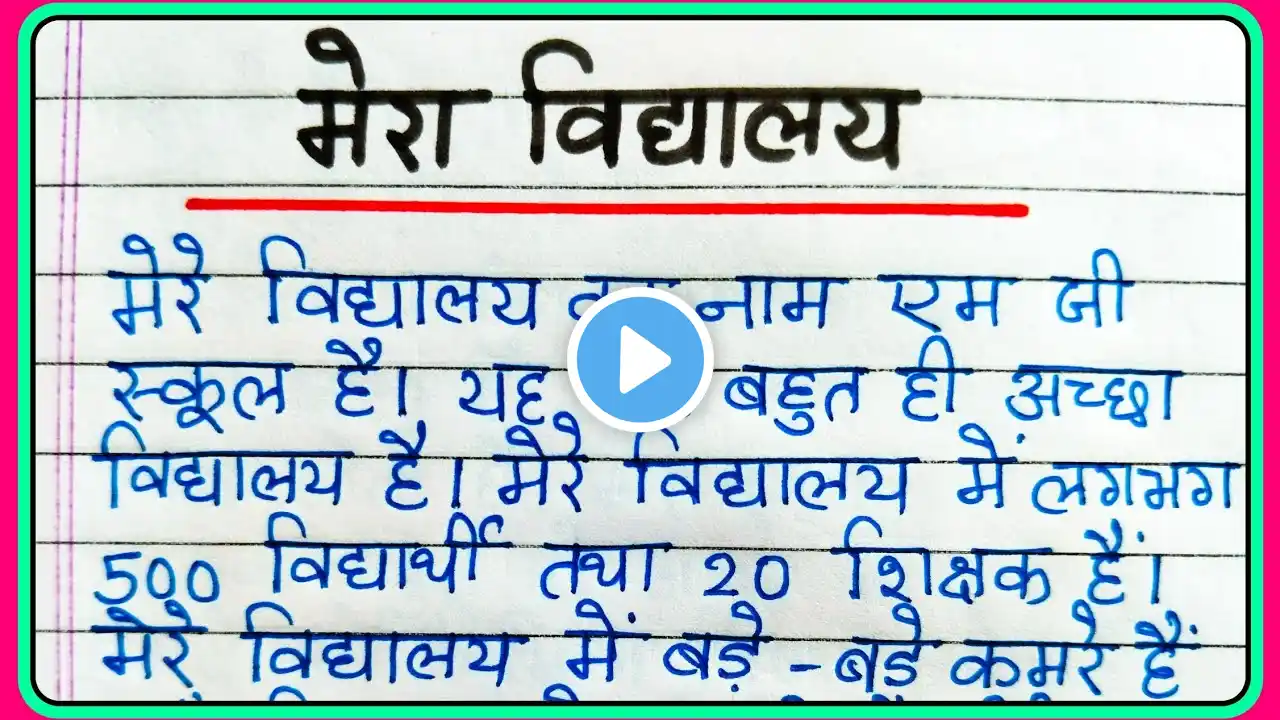 मेरा विद्यालय
मेरे विद्यालय नाम एम जी
स्कूल है। यह बहुत ही अच्छा
विद्यालय है। मेरे विद्यालय में लगभग
500 विद्यार्थी तथा 20 शिक्षक हैं।
मेरे विद्यालय में बड़े-बड़े कमरे हैं